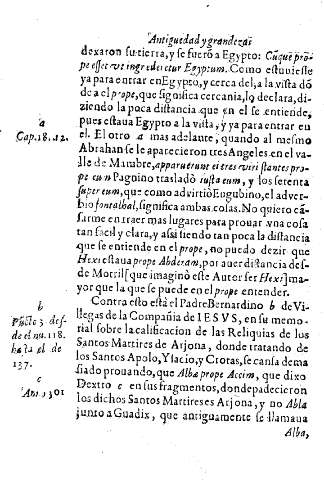 Antiguedad y grandezas
dexaron su tierra, y se fuerõ a Egypto: Cùque pro-
pe esset vt ingrederetur Egyptum. Como estuviesse
ya para entrar en Egypto, y cerca del, a la vista dõ
de a el prope, que significa cercania, lo declara, di-
ziendo la poca distancia que en el se entiende,
pues estaua Egypto a la vista, y ya para entrar en
a
Cap. 18. 12.
el. El otro a mas adelante, quando al mesmo
Abrahan se le aparecieron tres Angeles en el va-
lle de Mambre, apparuerunt ei tres viri stantes pro-
pe eum Pagnino trasladò iuxta eum, y los setenta
super eum, que como advirtiò Eugubino, el adver-
bio fontalbal, significa ambas colas. No quiero cã-
sarme en traer mas lugares para prouar vna cosa
tan facil y clara, y assi siendo tan poca la distancia
que se entiende en el prope, no puedo dezir que
Hexi estaua prope Abderam, por auer distancia des-
de Motril [que imaginò este Autor ser Hexi] ma-
yor que la que se puede en el prope entender.
b
Contra esto està el Padre Bernardino b de Vi-
llegas de la Compañia de IESVS, en su memo-
rial sobre la calificacion de las Reliquias de los
Santos Martires de Arjona, donde tratando de
137.
los Santos Apolo, Ysacio, y Crotas, se cansa dema
siado prouando, que Alba prope Accim, que dixo
c
Dextro c en sus fragmentos, donde padecieron
los dichos Santos Martires es Arjona, y no Abla
junto a Guadix, que antiguamente se llamaua
Alba,